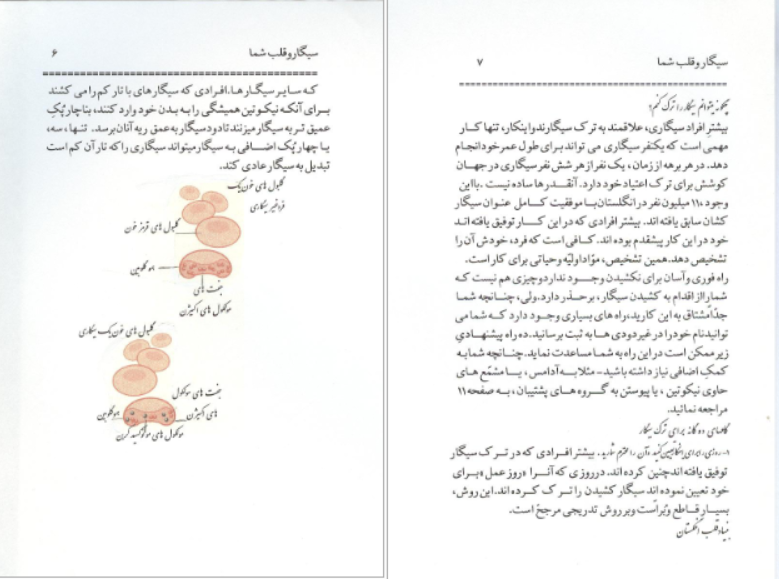 سیگار و قلب شما
۶
که سایر سیگارها. افرادی که سیگارهای با تار کم را می کشند
برای آنکه نیکوتین همیشگی را به بدن خود وارد کنند، بناچار پُکِ
عمیق تر به سیگار میزنند تا دود سیگار به عمق ریه آنان برسد. تنها، سه،
یا چهار پُک اضافی به سیگار میتواند سیگاری را که تار آن کم است
تبدیل به سیگار عادی کند.
گلبول های خون یک
فرد غیر سیگاری
گلبول های قرمز خون
هموگلوبین
جفت های
مولکول های اکسیژن
گلبول های خون یک سیگاری
جفت های مولکول
های اکسیژن
هموگلوبین
مولکول های مونوکسید کربن
سیگار و قلب شما
۷
چگونه میتوانم سیگار را ترک کنم؟
بیشترِ افراد سیگاری، علاقمند به ترک سیگارند و اینکار، تنها کار
مهمی است که یکنفر سیگاری می تواند برای طول عمر خود انجام
دهد. در هر برهه از زمان، یک نفر از هر شش نفر سیگاری در جهان
کوشش برای ترک اعتیاد خود دارد. آنقدرها ساده نیست. با این
وجود، ۱۱ میلیون نفر در انگلستان با موفقیت کامل عنوان سیگار
کشان سابق یافته اند. بیشتر افرادی که در این کار توفیق یافته اند
خود در این کار پیشقدم بوده اند. کافی است که فرد، خودش آن را
تشخیص دهد. همین تشخیص، موّاد اولیّه و حیاتی برای کار است.
راه فوری و آسان برای نکشیدن وجود ندارد و چیزی هم نیست که
شما را از اقدام به کشیدن سیگار، بر حذر دارد. ولی، چنانچه شما
جدّاً مشتاق به این کارید، راه های بسیاری وجود دارد که شما می
توانید نام خود را در غیر دودی ها به ثبت برسانید. ده راه پیشنهادیِ
زیر ممکن است در این راه به شما مساعدت نماید. چنانچه شما به
کمکِ اضافی نیاز داشته باشید- مثلا به آدامس، یا مشمّع های
حاوی نیکوتین، یا پیوستن به گروه های پشتیبان، به صفحه ۱۱
مراجعه نمائید.
گامهای ده گانه برای ترک سیگار
۱- روزی را برای اینکار تعیین کنید و آن را محترم شمارید. بیشتر افرادی که در ترک سیگار
توفیق یافته اند چنین کرده اند. در روزی که آنرا «روز عمل» برای
خود تعیین نموده اند سیگار کشیدن را ترک کرده اند. این روش،
بسیار قاطع و بُراست و بر روش تدریجی مرجحّ است.
بنیاد قلب انگلستان